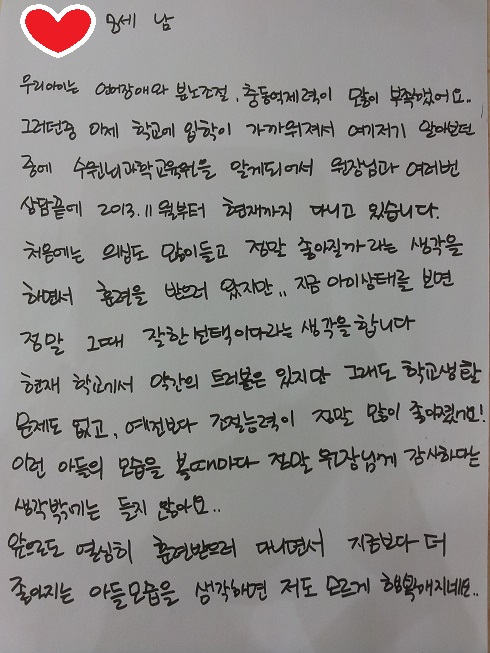 8세 남
우리아이는 언어장애와 분노조절, 충동억제력이 많이 부족했어요..
그러던중 이제 학교에 입학이 가까워져서 여기저기 알아보던
중에 수원뇌과학교육원을 알게되어서 원장님과 여러번
상담끝에 2013.11월부터 현재까지 다니고 있습니다.
처음에는 의심도 많이들고 정말 좋아질까라는 생각을
하면서 훈련을 받으러 왔지만,, 지금 아이상태를 보면
정말 그때 잘한선택이다라는 생각을 합니다
현재 학교에서 약간의 트러블은 있지만 그래도 학교생활
문제도 없고, 예전보다 조절능력이 정말 많이 좋아졌거든요!
이런 아들의 모습을 볼때마다 정말 원장님께 감사하다는
생각밖에는 들지 않아요..
앞으로도 열심히 훈련받으러 다니면서 지금보다 더
좋아지는 아들모습을 생각하면 저도 모르게 행복해지네요..